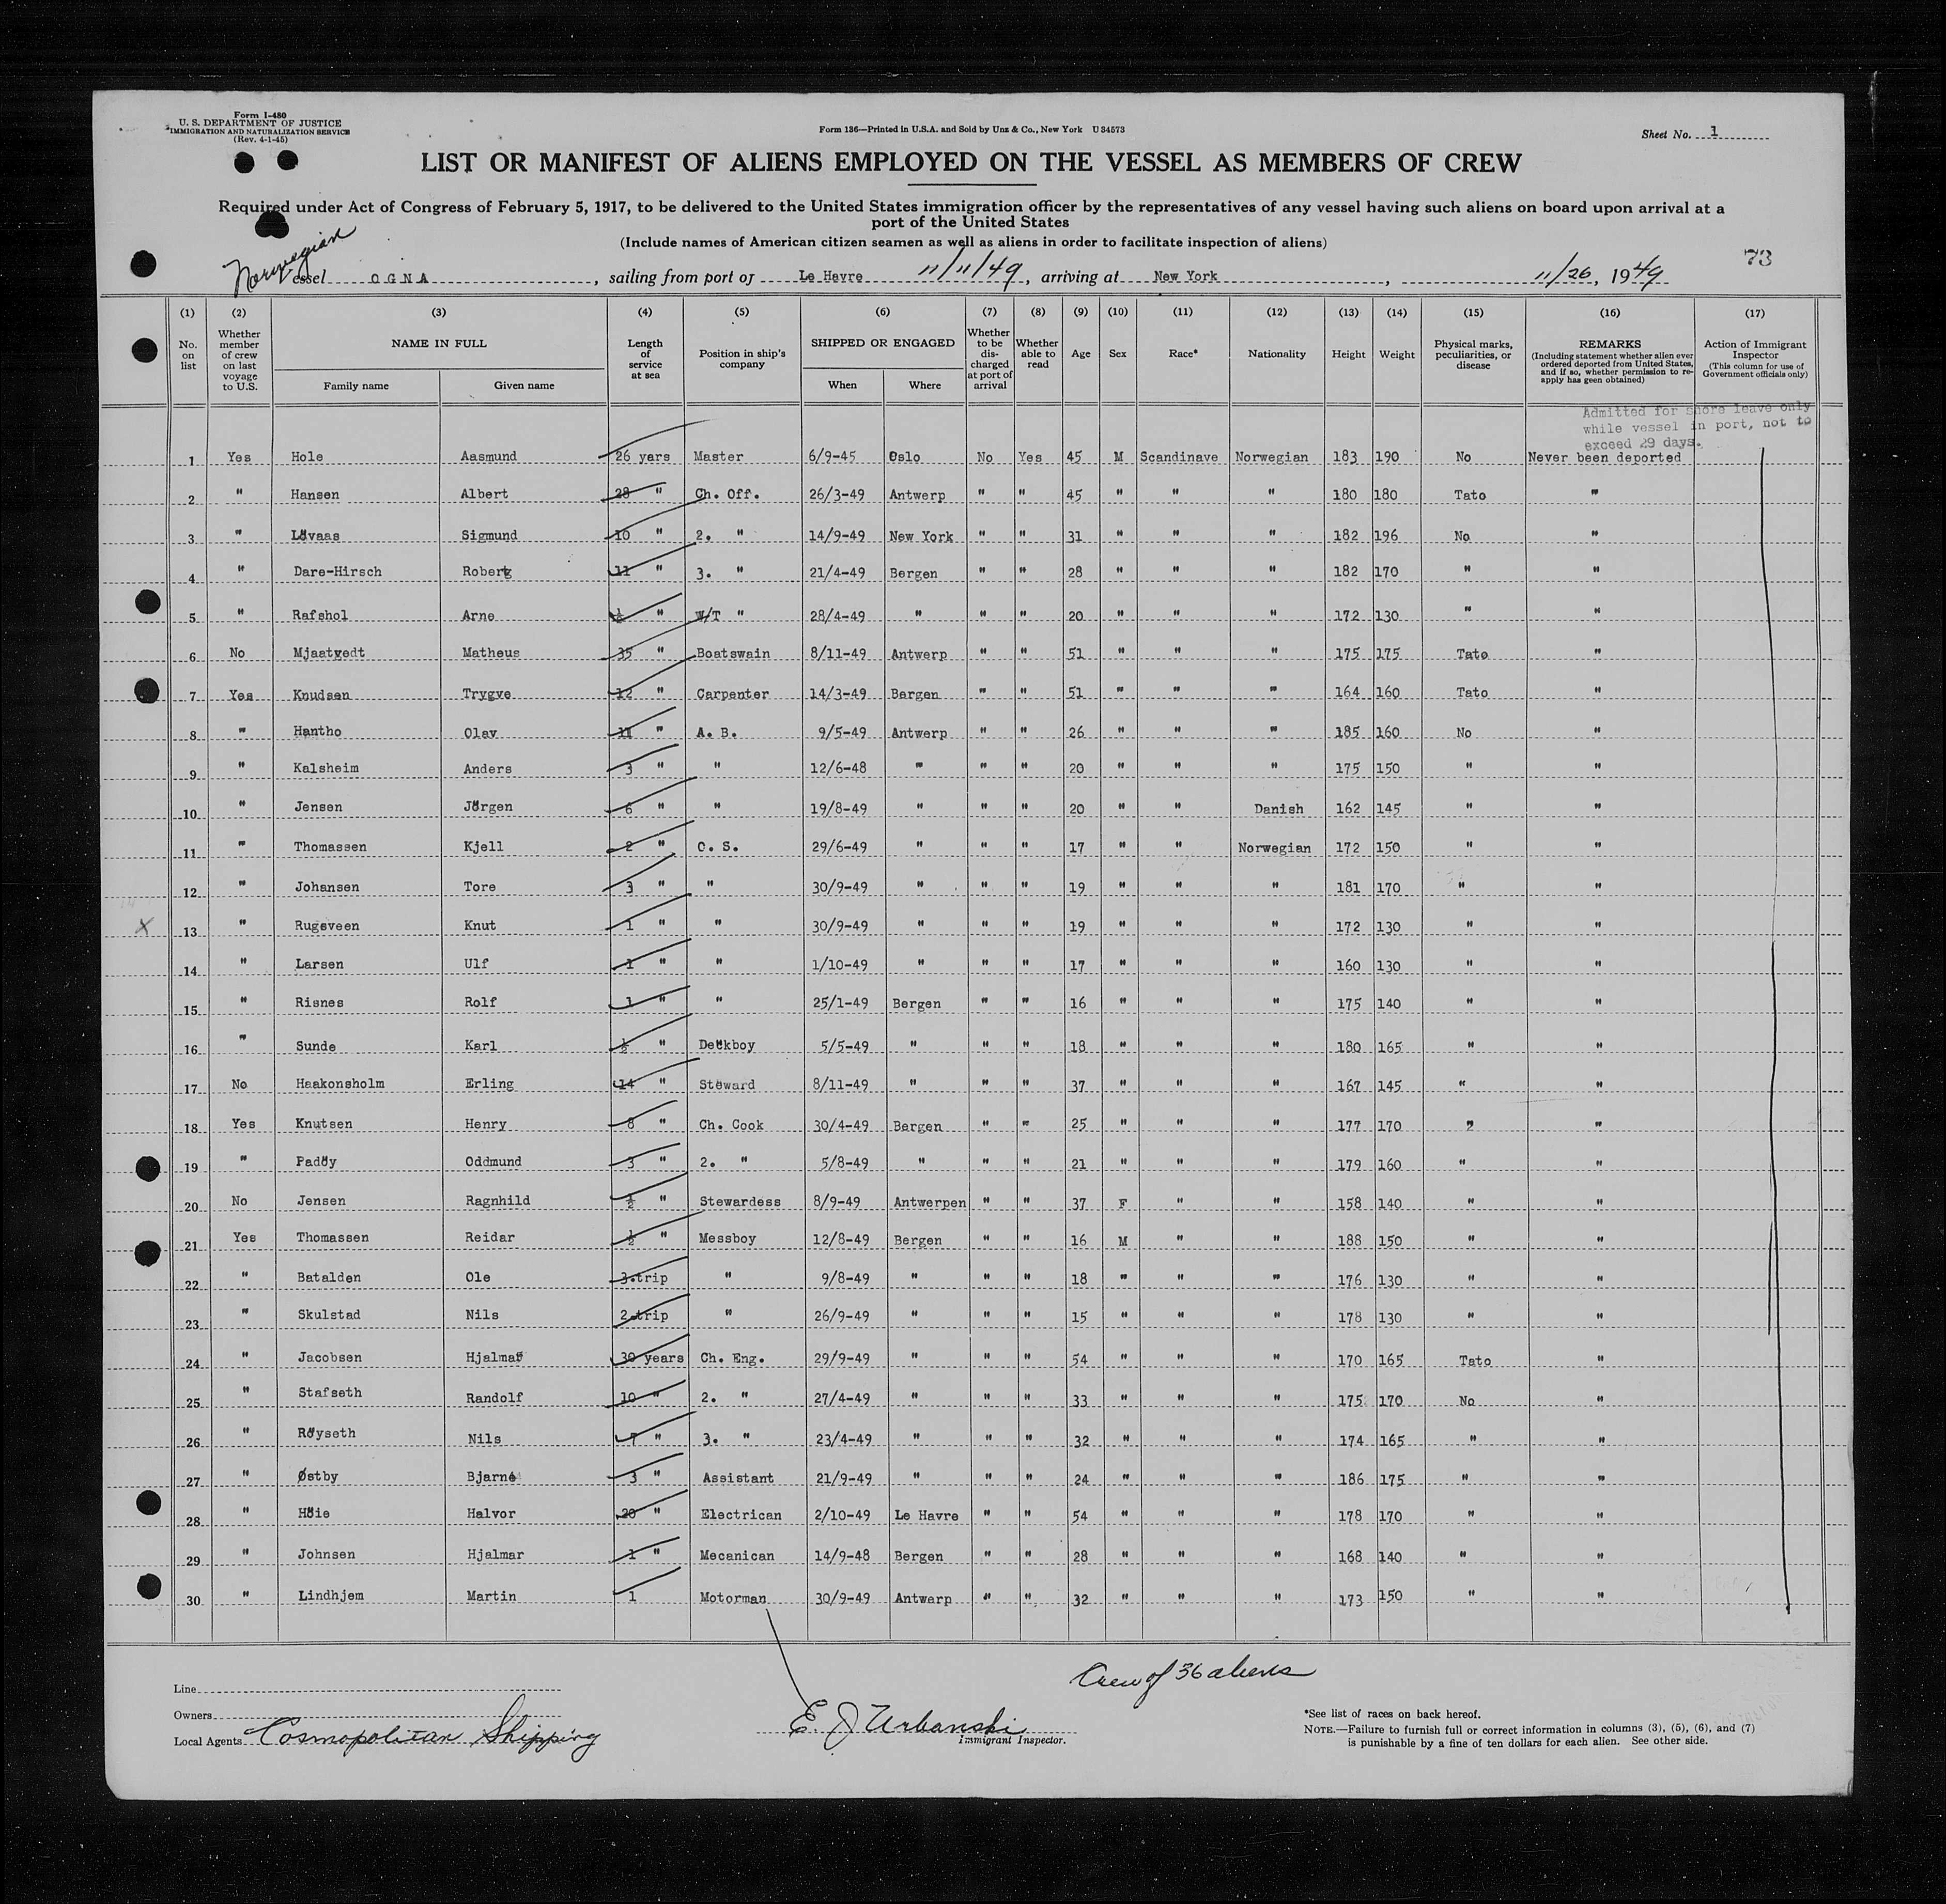 Form I-480
U. S. DEPARTMENT OF JUSTICE
IMMIGRATION AND NATURALIZATION SERVICE
(Rev. 4-1-45)
Form 136—Printed in U.S.A. and Sold by Unz & Co., New York U 34573
Sheet No. 1
LIST OR MANIFEST OF ALIENS EMPLOYED ON THE VESSEL AS MEMBERS OF CREW
Required under Act of Congress of February 5, 1917, to be delivered to the United States immigration officer by the representatives of any vessel having such aliens on board upon arrival at a
port of the United States
(Include names of American citizen seamen as well as aliens in order to facilitate inspection of aliens)
73
Norwegian essel OGNA, sailing from port of Le Havre 11/11/49, arriving at New York, 11/26, 1949
(1) (2) (3) (4) (5) (6) (7) (8) (9) (10) (11) (12) (13) (14) (15) (16) (17)
No. on list
Whether member of crew on last voyage to U.S.
NAME IN FULL
Family name Given name
Length of service at sea
Position in ship's company
SHIPPED OR ENGAGED
When Where
Whether to be discharged at port of arrival
Whether able to read
Age Sex Race* Nationality Height Weight
Physical marks, peculiarities, or disease
REMARKS
(Including statement whether alien ever ordered deported from United States, and if so, whether permission to reapply has geen obtained)
Action of Immigrant Inspector
(This column for use of Government officials only)
Admitted for shore leave only
while vessel in port, not to
exceed 29 days.
1 Yes Hole Aasmund 26 yars Master 6/9-45 Oslo No Yes 45 M Scandinave Norwegian 183 190 No Never been deported
2 " Hansen Albert 28 " Ch. Off. 26/3-49 Antwerp " " 45 " " " 180 180 Tato "
3 " Lövaas Sigmund 10 " 2. " 14/9-49 New York " " 31 " " " 182 196 No "
4 " Dare-Hirsch Robert 11 " 3. " 21/4-49 Bergen " " 28 " " " 182 170 " "
5 " Rafshol Arne ½ " W/T " 28/4-49 " " " 20 " " " 172 130 " "
6 No Mjaatvedt Matheus 35 " Boatswain 8/11-49 Antwerp " " 51 " " " 175 175 Tato "
7 Yes Knudsen Trygve 12 " Carpenter 14/3-49 Bergen " " 51 " " " 164 160 Tato "
8 " Hantho Olav 11 " A. B. 9/5-49 Antwerp " " 26 " " " 185 160 No "
9 " Kalsheim Anders 3 " " 12/6-48 " " " 20 " " " 175 150 " "
10 " Jensen Jörgen 6 " " 19/8-49 " " " 20 " " Danish 162 145 " "
11 " Thomassen Kjell 2 " O. S. 29/6-49 " " " 17 " " Norwegian 172 150 " "
12 " Johansen Tore 3 " " 30/9-49 " " " 19 " " " 181 170 " "
13 " Rugsveen Knut 1 " " 30/9-49 " " " 19 " " " 172 130 " "
14 " Larsen Ulf 1 " " 1/10-49 " " " 17 " " " 160 130 " "
15 " Risnes Rolf 1 " " 25/1-49 Bergen " " 16 " " " 175 140 " "
16 " Sunde Karl ½ " Deckboy 5/5-49 " " " 18 " " " 180 165 " "
17 No Haakonsholm Erling 14 " Steward 8/11-49 " " " 37 " " " 167 145 " "
18 Yes Knutsen Henry 8 " Ch. Cook 30/4-49 Bergen " " 25 " " " 177 170 " "
19 " Padöy Oddmund 3 " 2. " 5/8-49 " " " 21 " " " 179 160 " "
20 No Jensen Ragnhild ½ " Stewardess 8/9-49 Antwerpen " " 37 F " " 158 140 " "
21 Yes Thomassen Reidar ½ " Messboy 12/8-49 Bergen " " 16 M " " 188 150 " "
22 " Batalden Ole 3 trip " 9/8-49 " " " 18 " " " 176 130 " "
23 " Skulstad Nils 2 trip " 26/9-49 " " " 15 " " " 178 130 " "
24 " Jacobsen Hjalmar 30 years Ch. Eng. 29/9-49 " " " 54 " " " 170 165 Tato "
25 " Stafseth Randolf 10 " 2. " 27/4-49 " " " 33 " " " 175 170 No "
26 " Röyseth Nils 7 " 3. " 23/4-49 " " " 32 " " " 174 165 " "
27 " Østby Bjarne 3 " Assistant 21/9-49 " " " 24 " " " 186 175 " "
28 " Höie Halvor 20 " Electrican 2/10-49 Le Havre " " 54 " " " 178 170 " "
29 " Johnsen Hjalmar 1 " Mecanican 14/9-48 Bergen " " 28 " " " 168 140 " "
30 " Lindhjem Martin 1 Motorman 30/9-49 Antwerp " " 32 " " " 173 150 " "
Crew of 36 aliens
Line
Owners
Local Agents Cosmopolitan Shipping
E. J Urbanski
Immigrant Inspector.
*See list of races on back hereof.
NOTE.—Failure to furnish full or correct information in columns (3), (5), (6), and (7)
is punishable by a fine of ten dollars for each alien. See other side.